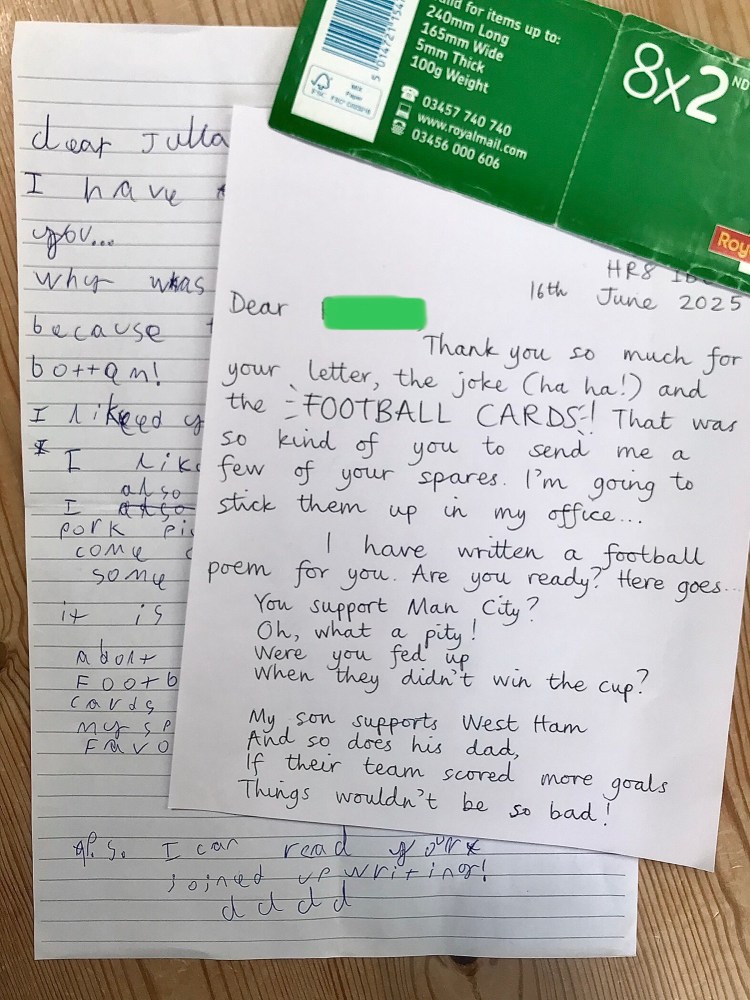 for items up to:
240mm Long
165mm Wide
5mm Thick
100g Weight
03457 740 740
www.royalmail.com
03456 000 606
8x2ND
Roy
dear Julia
I have
you...
why was
because
bottom!
I
I
also
I also
pork
come
some
it is
Footb
cards
my
p.s. I can read your
joined up writing!
d d d d
HR8
16th June 2025
Dear
Thank you so much for
your letter, the joke (ha ha!) and
the FOOTBALL CARDS! That was
so kind of you to send me a
few of your spares. I'm going to
stick them up in my office...
I have written a football
poem for you. Are you ready? Here goes...
You support Man City?
Oh, what a pity!
Were you fed up
When they didn't win the cup?
My son supports West Ham
And so does his dad,
If their team scored more goals
Things wouldn't be so bad!